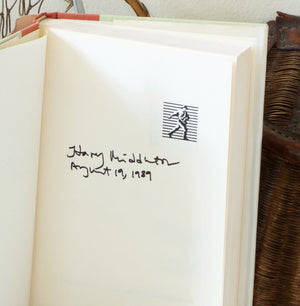 Harry Middleton
August 19, 1989